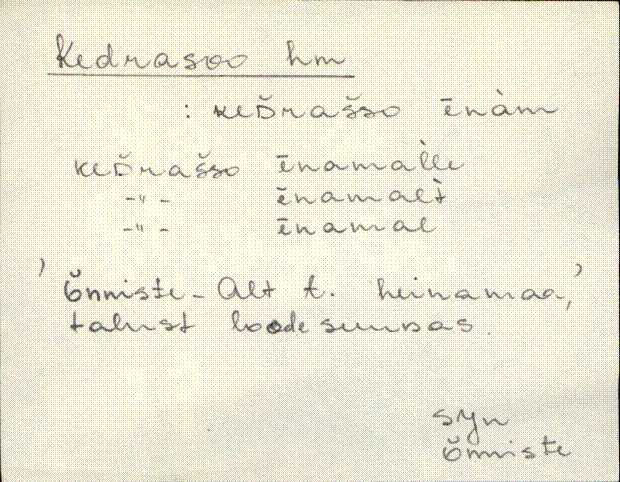 Kedrasoo hm
: keDrašso ēnàm
keDrašso ēnamal̀le
-"- ēnamalt̀
-"- ēnamal
'õnniste-Alt t. heinamaa,'
talust loode suunas.
syn
õnniste